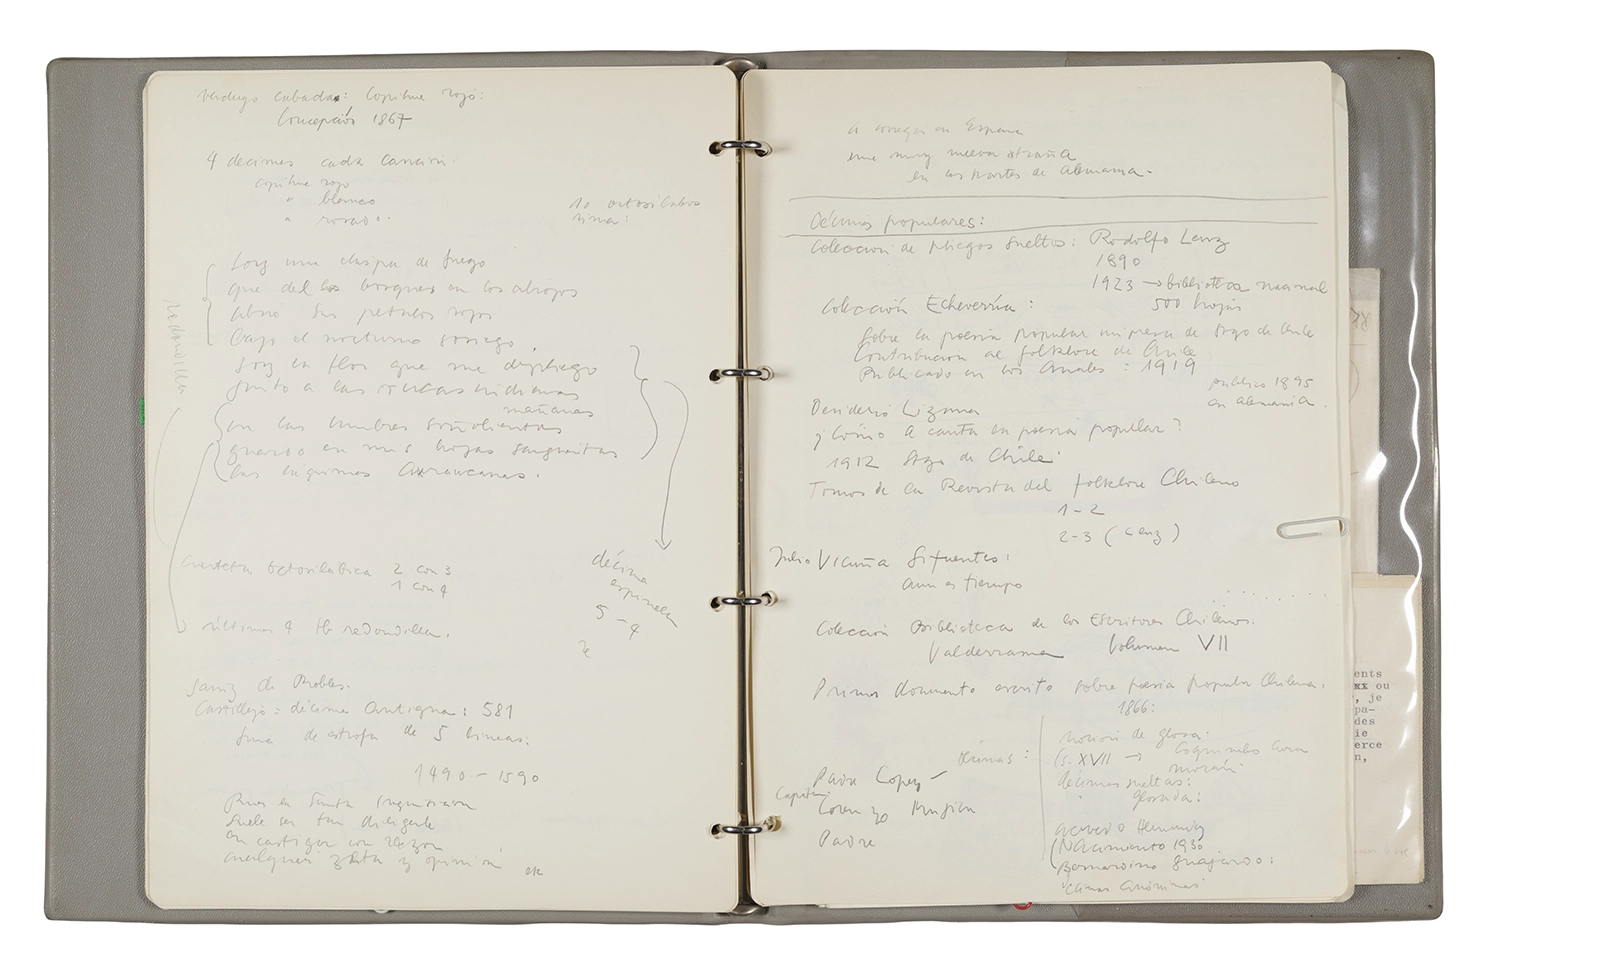 Verdugo Cabada: Copihue rojo:
Concepción 1867
4 décimas cada canción.
copihue rojo
" blanco
" rosado.
10 octosílabos
rima:
Redondilla
Soy una chispa de fuego
que del los bosques en los abrojos
abro sus pétalos rojos
bajo el nocturno sosiego.
Soy la flor que me despliego
junto a las rucas indianas
mañanas
en las cumbres soñolientas
guardo en mis hojas sangrientas
las lágrimas Araucanas.
cuarteta octosílabica 2 con 3
1 con 4
décima
espinela
5-4
últimas 4 redondilla.
Sainz de Robles.
Castillejo: décima antigua: 581
de estrofa de 5 lineas.
1490-1590
Pues la Santa Inquisición
suele ser tan diligente
en castigar con razón
cualquier secta y opinión etc
a corregir en España
una muy nueva extraña
en las partes de Alemania.
Décimas populares:
Colección de pliegos sueltos: Rodolfo Lenz
1890
1923 → biblioteca nacional
500 hojas
Colección Echeverría:
Sobre la poesía popular impresa de Stgo de Chile
Contribución al folklore de Chile
Publicado en los Anales: 1919
publico 1895
en Alemania.
Desiderio Lizana
¿Cómo se canta la poesía popular?
1912 Stgo de Chile.
Tomos de la Revista del folklore Chileno
1-2
2-3 (Lenz)
Julio Vicuña Sifuentes:
aun es tiempo
Colección Biblioteca de los Escritores Chilenos.
Valderrama Volumen VII
Primer documento escrito sobre poesía popular Chilena.
1866:
décimas:
noción de glosa:
(s. XVII →
décimas sueltas:
" glosada:
Padre Lopez -
Capitán
Lorenzo Mujica
Padre
Acevedo Hernandez
(Nacimiento 1930
Bernardino Guajardo:
décimas anónimas
ents
ou
, je
pa-
des
ie
erce
n,